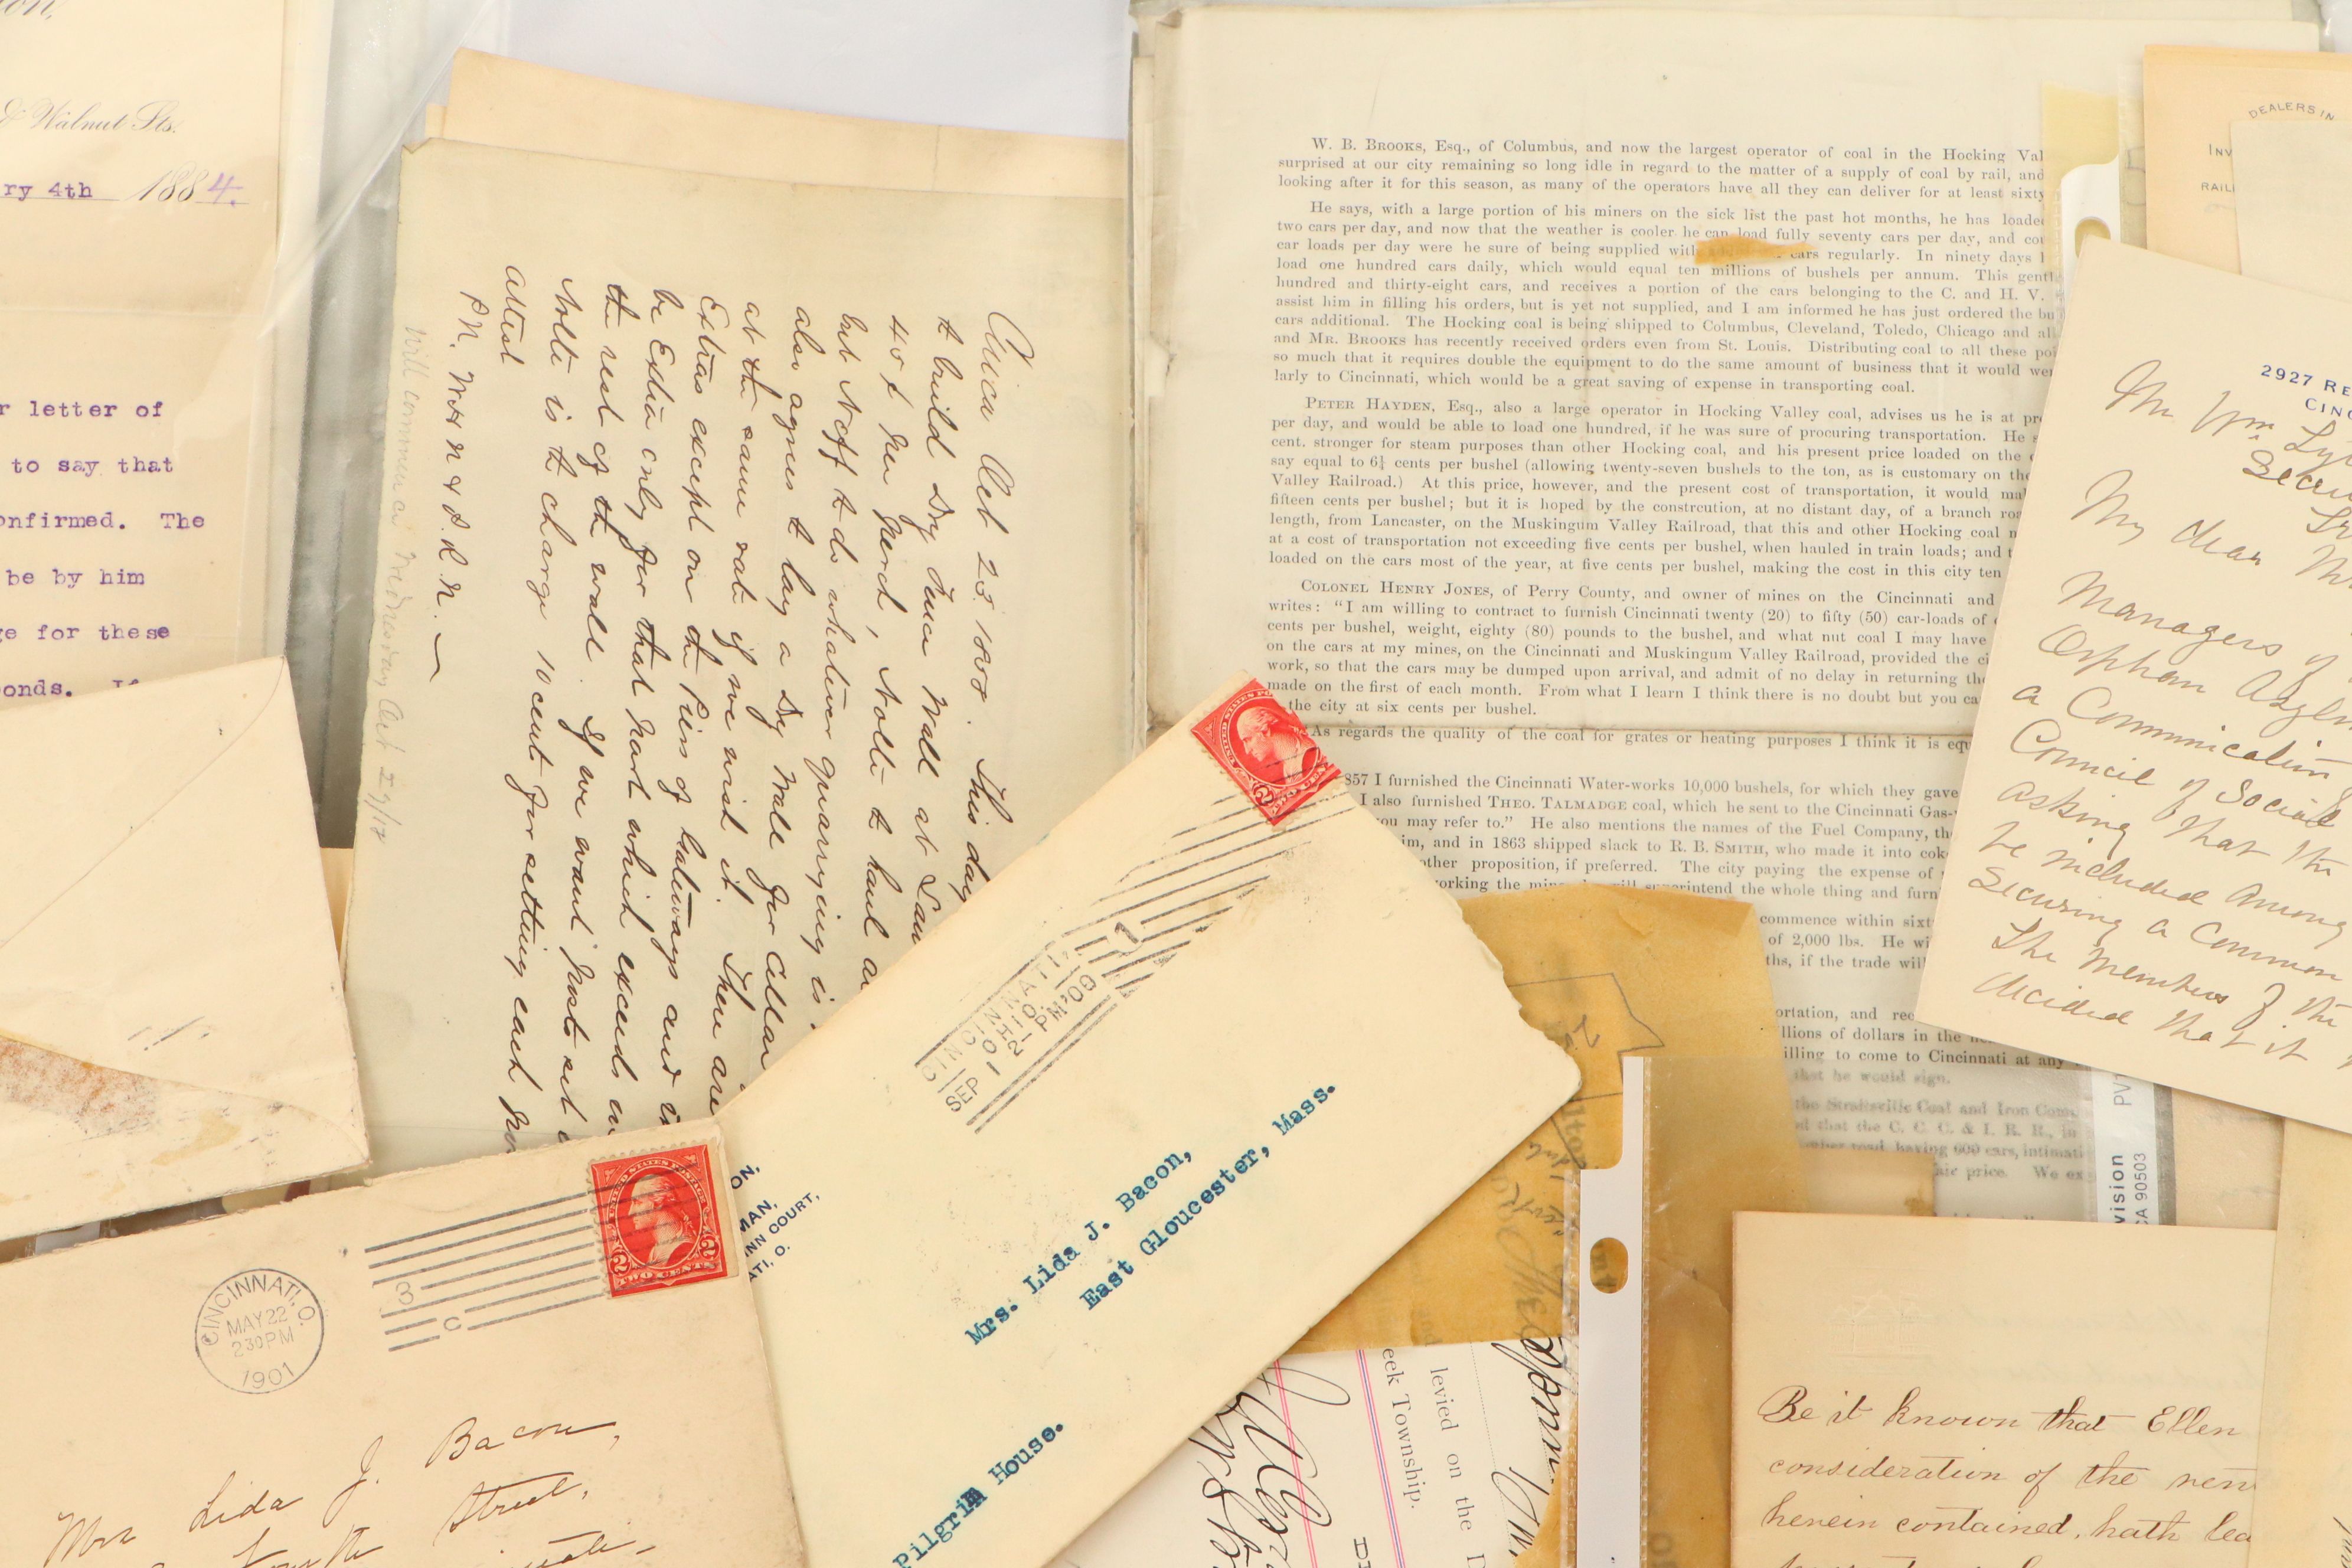 & Walnut Sts.
ry 4th 1884.
r letter of
to say that
onfirmed. The
be by him
ge for these
onds.
Utica Oct 23 1888. This day
to build Dry Fence Wall at
40 ¢ per perch, Nolte to haul
but Neff to do whatever quarrying is
also agrees to lay a Dry Wall for Cellar
at the same rate if we wish it. There are
Extras except on the Piers of Gateways and
be Extra only for that part which exceeds
the rest of the wall. If we want posts set
Nolte is to charge 10 cents for setting each
Attest
Will commence Wednesday Oct
W. B. BROOKS, Esq., of Columbus, and now the largest operator of coal in the Hocking Val
surprised at our city remaining so long idle in regard to the matter of a supply of coal by rail, and
looking after it for this season, as many of the operators have all they can deliver for at least sixty
He says, with a large portion of his miners on the sick list the past hot months, he has loade
two cars per day, and now that the weather is cooler he can load fully seventy cars per day, and co
car loads per day were he sure of being supplied with cars regularly. In ninety days
load one hundred cars daily, which would equal ten millions of bushels per annum. This gentl
hundred and thirty-eight cars, and receives a portion of the cars belonging to the C. and H. V.
assist him in filling his orders, but is yet not supplied, and I am informed he has just ordered the bu
cars additional. The Hocking coal is being shipped to Columbus, Cleveland, Toledo, Chicago and al
and MR. BROOKS has recently received orders even from St. Louis. Distributing coal to all these poi
so much that it requires double the equipment to do the same amount of business that it would wer
larly to Cincinnati, which would be a great saving of expense in transporting coal.
PETER HAYDEN, Esq., also a large operator in Hocking Valley coal, advises us he is at pr
per day, and would be able to load one hundred, if he was sure of procuring transportation. He
cent. stronger for steam purposes than other Hocking coal, and his present price loaded on the
say equal to 6¼ cents per bushel (allowing twenty-seven bushels to the ton, as is customary on the
Valley Railroad.) At this price, however, and the present cost of transportation, it would ma
fifteen cents per bushel; but it is hoped by the constrcution, at no distant day, of a branch ro
length, from Lancaster, on the Muskingum Valley Railroad, that this and other Hocking coal
at a cost of transportation not exceeding five cents per bushel, when hauled in train loads; and
loaded on the cars most of the year, at five cents per bushel, making the cost in this city ten
COLONEL HENRY JONES, of Perry County, and owner of mines on the Cincinnati and
writes: "I am willing to contract to furnish Cincinnati twenty (20) to fifty (50) car-loads of
cents per bushel, weight, eighty (80) pounds to the bushel, and what nut coal I may have
on the cars at my mines, on the Cincinnati and Muskingum Valley Railroad, provided the ci
work, so that the cars may be dumped upon arrival, and admit of no delay in returning the
made on the first of each month. From what I learn I think there is no doubt but you ca
the city at six cents per bushel.
As regards the quality of the coal for grates or heating purposes I think it is equ
857 I furnished the Cincinnati Water-works 10,000 bushels, for which they gave
I also furnished THEO. TALMADGE coal, which he sent to the Cincinnati Gas-
ou may refer to." He also mentions the names of the Fuel Company, th
im, and in 1863 shipped slack to R. B. SMITH, who made it into cok
other proposition, if preferred. The city paying the expense of
orking the superintend the whole thing and furn
commence within sixt
of 2,000 lbs. He wi
ths, if the trade wil
ortation, and rec
llions of dollars in the
illing to come to Cincinnati at any
that he would sign.
the Straitsville Coal and Iron Com
d that the C. C. C. & I. R. R., in
road, having 600 cars, intimati
price. We ex
DEALERS IN
INV
RAIL
2927 RE
CINC
Mr Wm
Secre
My dear
Managers of
Orphan Asyl
a Communication
Council of Social
asking that the
be included among
securing a common
The members of the
decided that it
vision
CA 90503
PV1
CINCINNATI,
OHIO.
SEP 1 2-PM '00
1
UNITED STATES POSTAGE
2 TWO CENTS 2
Mrs. Lida J. Bacon,
East Gloucester, Mass.
Pilgrim House.
ON,
MAN,
NN COURT,
TI, O.
CINCINNATI. O.
MAY 22
230 PM
1901
3
C
UNITED STATES POSTAGE
2 TWO CENTS 2
Mrs Lida J. Bacon,
Street,
levied on the
eek Township.
Be it known that Ellen
consideration of the ren
herein contained, hath lea